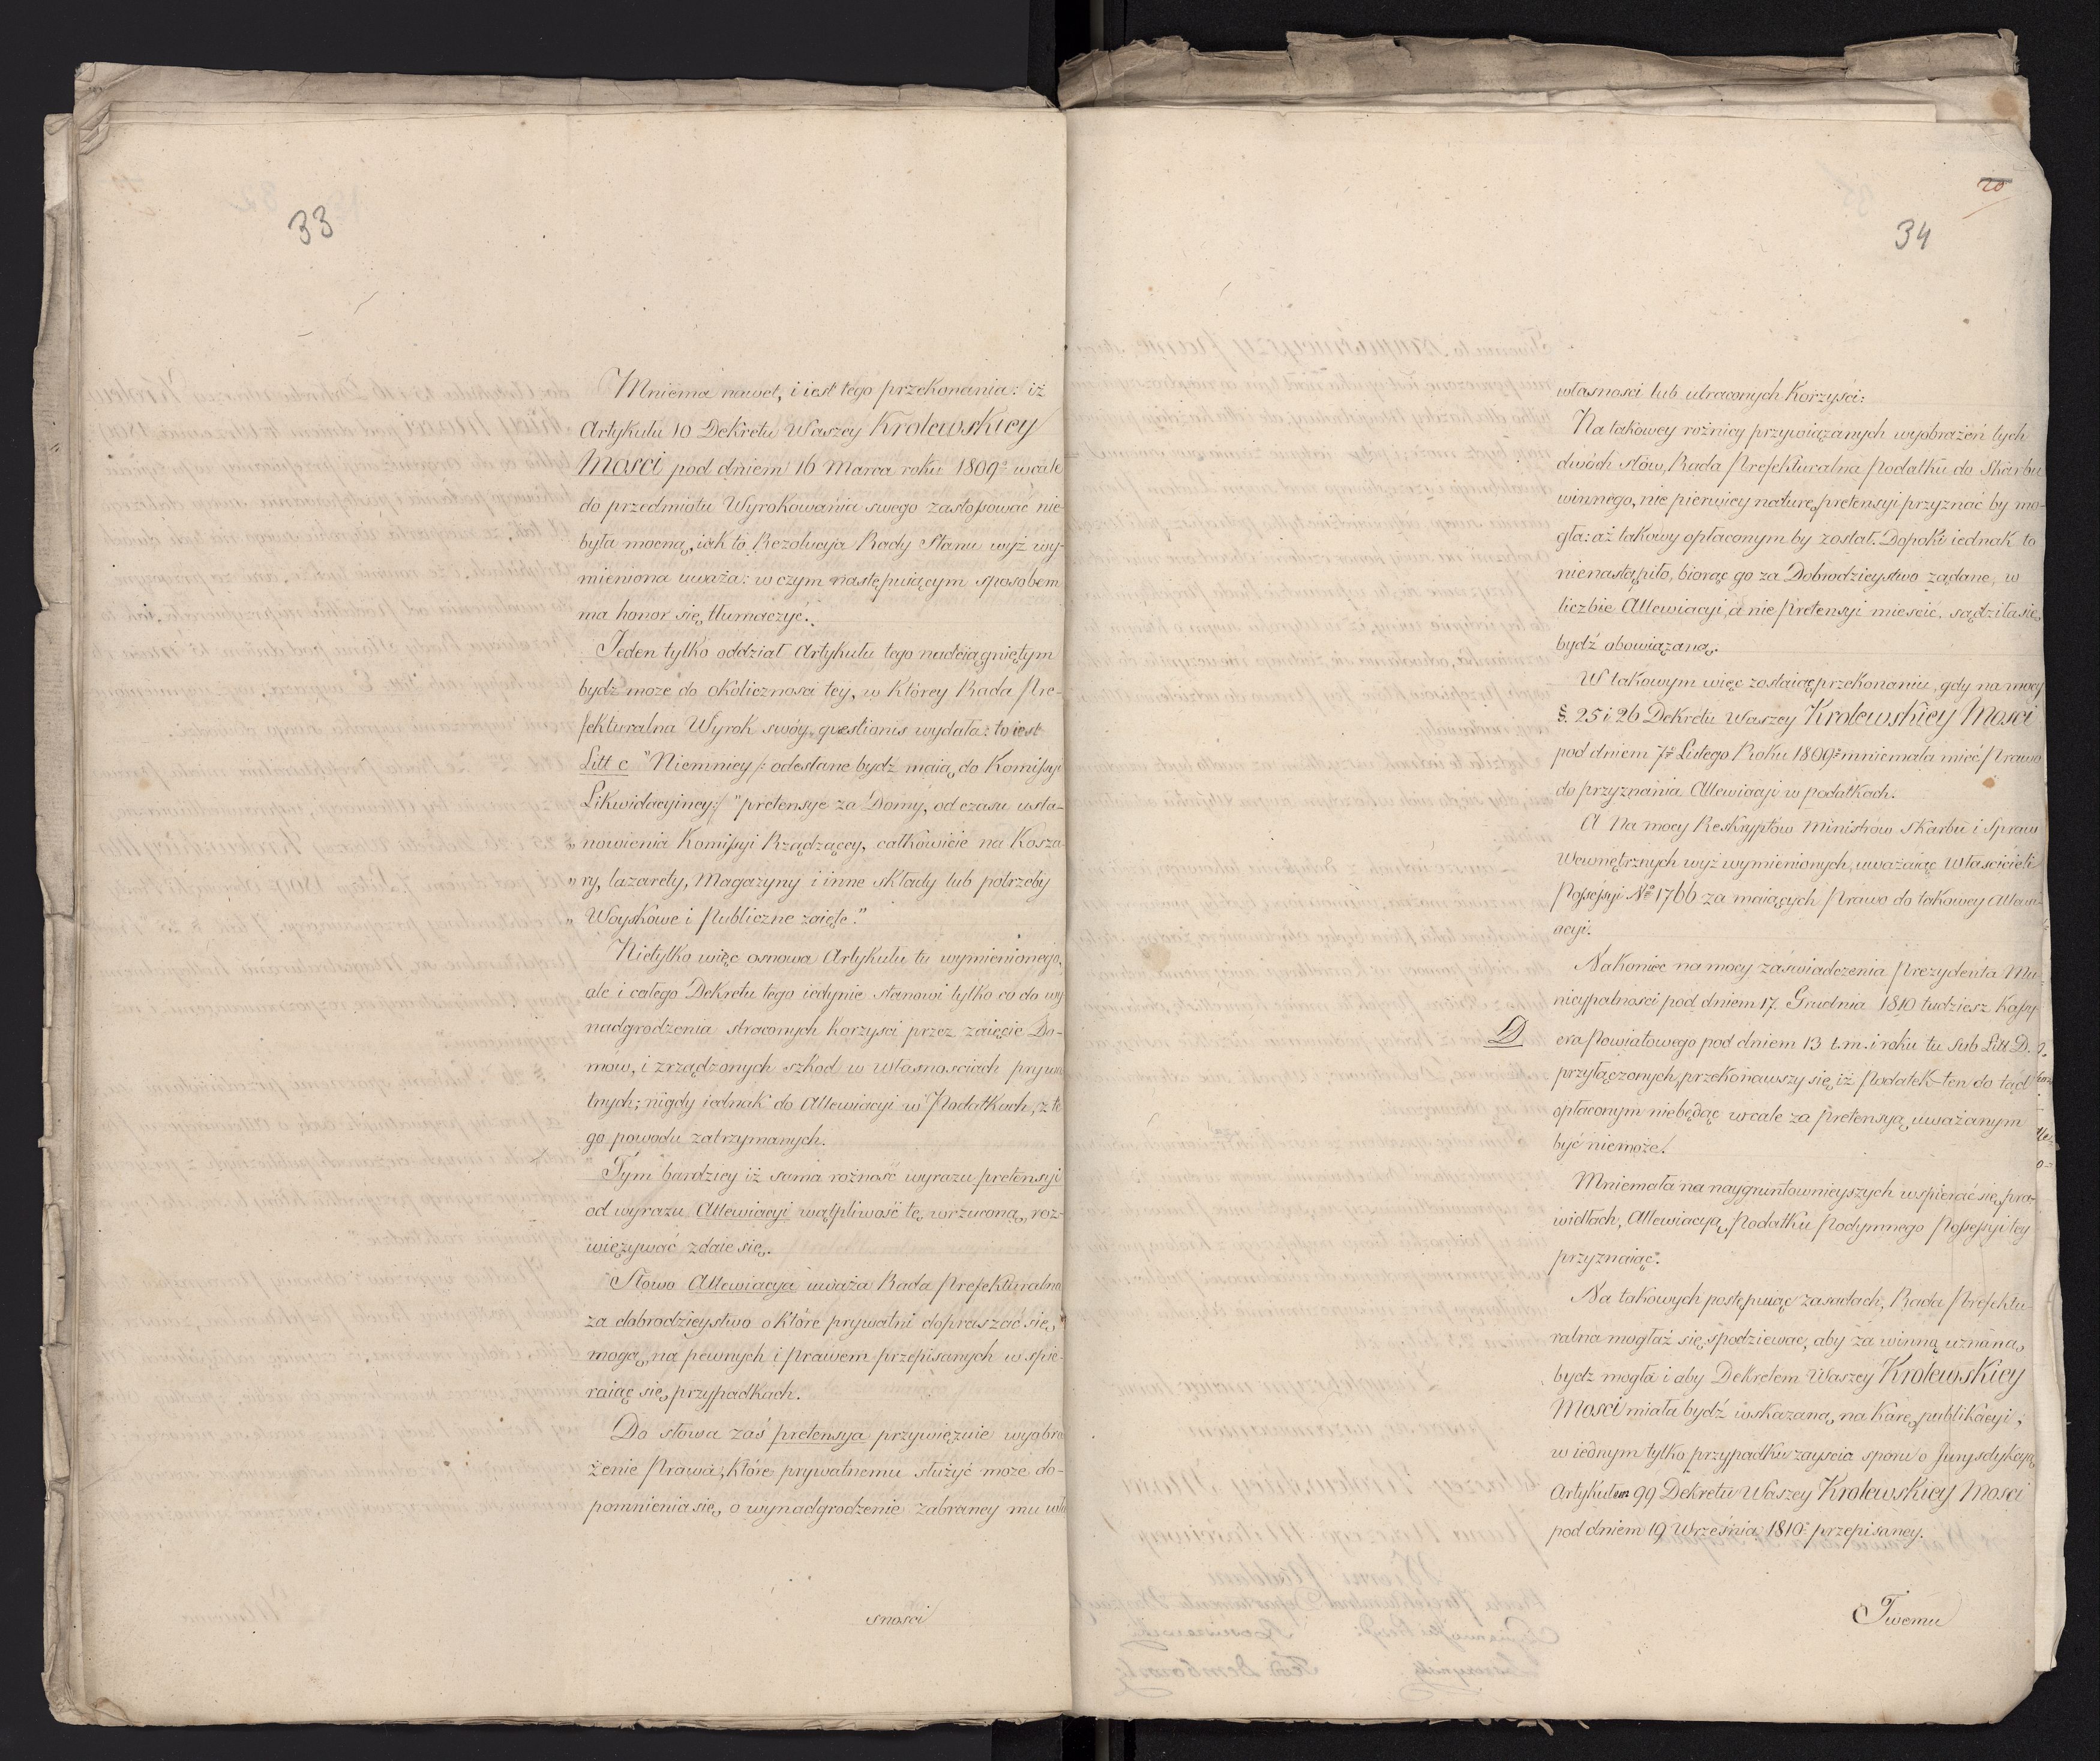 33
Mniema nawet, i iest tego przekonania: iż
Artykułu 10 Dekretu Waszey Krolewskiey
Mosci pod dniem 16 Marca roku 1809º wcale
do przedmiotu Wyrokowania swego zastosować nie-
była mocną, iak to Rezolucyja Rady Stanu wyż wy-
mieniona uważa: w czym następuiącym sposobem
ma honor się tłumaczyć.
Jeden tylko oddział Artykułu tego nadciągniętym
bydź może do okoliczności tey, w którey Rada Pre-
fekturalna Wyrok swóy questionis wydała: to iest
Litt c "Niemniey /: odesłane bydź maią do Komissyi
Likwidacyiney :/ "pretensye za Domy, od czasu usta-
"nowienia Komissyi Rządzącey, całkowicie na Kosza-
"ry, lazarety, Magazyny i inne składy lub potrzeby
"Woyskowe i Publiczne zaięte."
Nietylko więc osnowa Artykułu tu wymienionego,
ale i całego Dekretu tego iedynie stanowi tylko co do wy
nadgrodzenia straconych Korzysci przez zaięcie Do-
mów, i zrządzonych szkod w własnosciach prywa
tnych; nigdy iednak do Allewiacyi w Podatkach, z te
go powodu zatrzymanych.
Tym bardziey iż sama rożność wyrazu pretensyi
od wyrazu Allewiacyi wątpliwość tę wrzuconą, roz-
więzywać zdaie się.
Słowo Allewiacya uważa Rada Prefekturalna
za dobrodzieystwo o które prywatni dopraszać się
mogą, na pewnych i prawem przepisanych wspie-
raiąc się, przypadkach.
Do słowa zaś pretensya przywięzuie wyobra
żenie Prawa, które prywatnemu służyć może do-
pomnienia się, o wynadgrodzenie zabraney mu wła
snosci
20
34
własnosci lub utraconych Korzyści:
Na takowey rożnicy przywiązanych wyobrażeń tych
dwóch słów, Rada Prefekturalna Podatku do Skarbu
winnego, nie pierwiey naturę pretensyi przyznać by mo-
gła: aż takowy opłaconym by został. Dopoki iednak to
nienastąpiło, biorąc go za Dobrodzieystwo żądane, w
liczbie Allewiacyi, a nie Pretensyi mieścić, sądziła się
bydź obowiązaną.
W takowym więc zostaiąc przekonaniu, gdy na mocy
§. 25 i 26 Dekretu Waszey Krolewskiey Mosci
pod dniem 7º Lutego Roku 1809º mniemała mieć Prawo
do przyznania Allewiacyi w podatkach.
A Na mocy Reskryptów Ministrów Skarbu i Spraw
Wewnętrznych wyż wymienionych, uważaiąc Właścicieli
Possessyi Nº 1766 za maiących Prawo do takowey Allewi
acyi.
Nakoniec na mocy zaświadczenia Prezydenta Mu-
nicypalnosci pod dniem 17. Grudnia 1810 tudziesz Kassy-
D
era Powiatowego pod dniem 13 t. m. i roku tu sub Litt D.
przyłączonych, przekonawszy się iż Podatek ten do tąd
opłaconym niebędąc wcale za Pretensyą uważanym
być niemoże.
Mniemała na naygruntownieyszych wspierać się pra-
widłach, Allewiacyą Podatku Podymnego Possessyi tey
przyznaiąc.
Na takowych postępuiąc zasadach, Rada Prefektu-
ralna mogłaż się spodziewać, aby za winną uznaną
bydz mogła i aby Dekretem Waszey Krolewskiey
Mosci miała bydź wskazaną na Karę publikacyi,
w iednym tylko przypadku zayscia sporu o Jurysdykcyą
Artykułem 99 Dekretu Waszey Krolewskiey Mosci
pod dniem 19 Września 1810º przepisaney.
Twemu